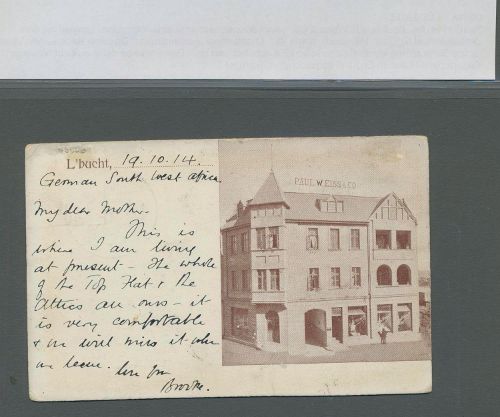 L'bucht, 19.10.14.
German South West Africa
PAUL WEISS & CO
My dear Mother.
This is
where I am living
at present - The whole
of the Top Flat & the
Attics are ours - it
is very comfortable
& we will miss it when
we leave. love from
Brooke.